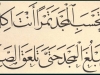 تحسب المجد تمرا أنت آكله
تبلغ المجد حتى تلعق الصبر